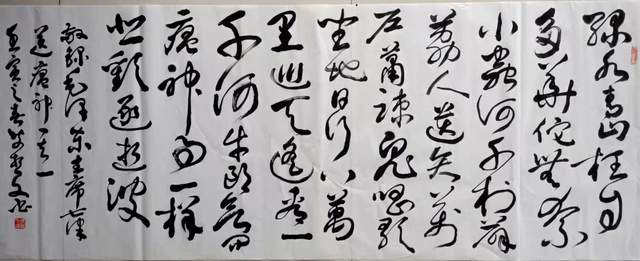 绿水青山枉自
多華佗無奈
小蟲何千村薜
荔人遗矢万
戶蕭疏鬼唱歌
坐地日行八萬
里巡天遥看一
千河牛郎欲问
瘟神事一樣
悲歡逐逝波
敬録毛泽东主席七律
送瘟神其一
壬寅之春